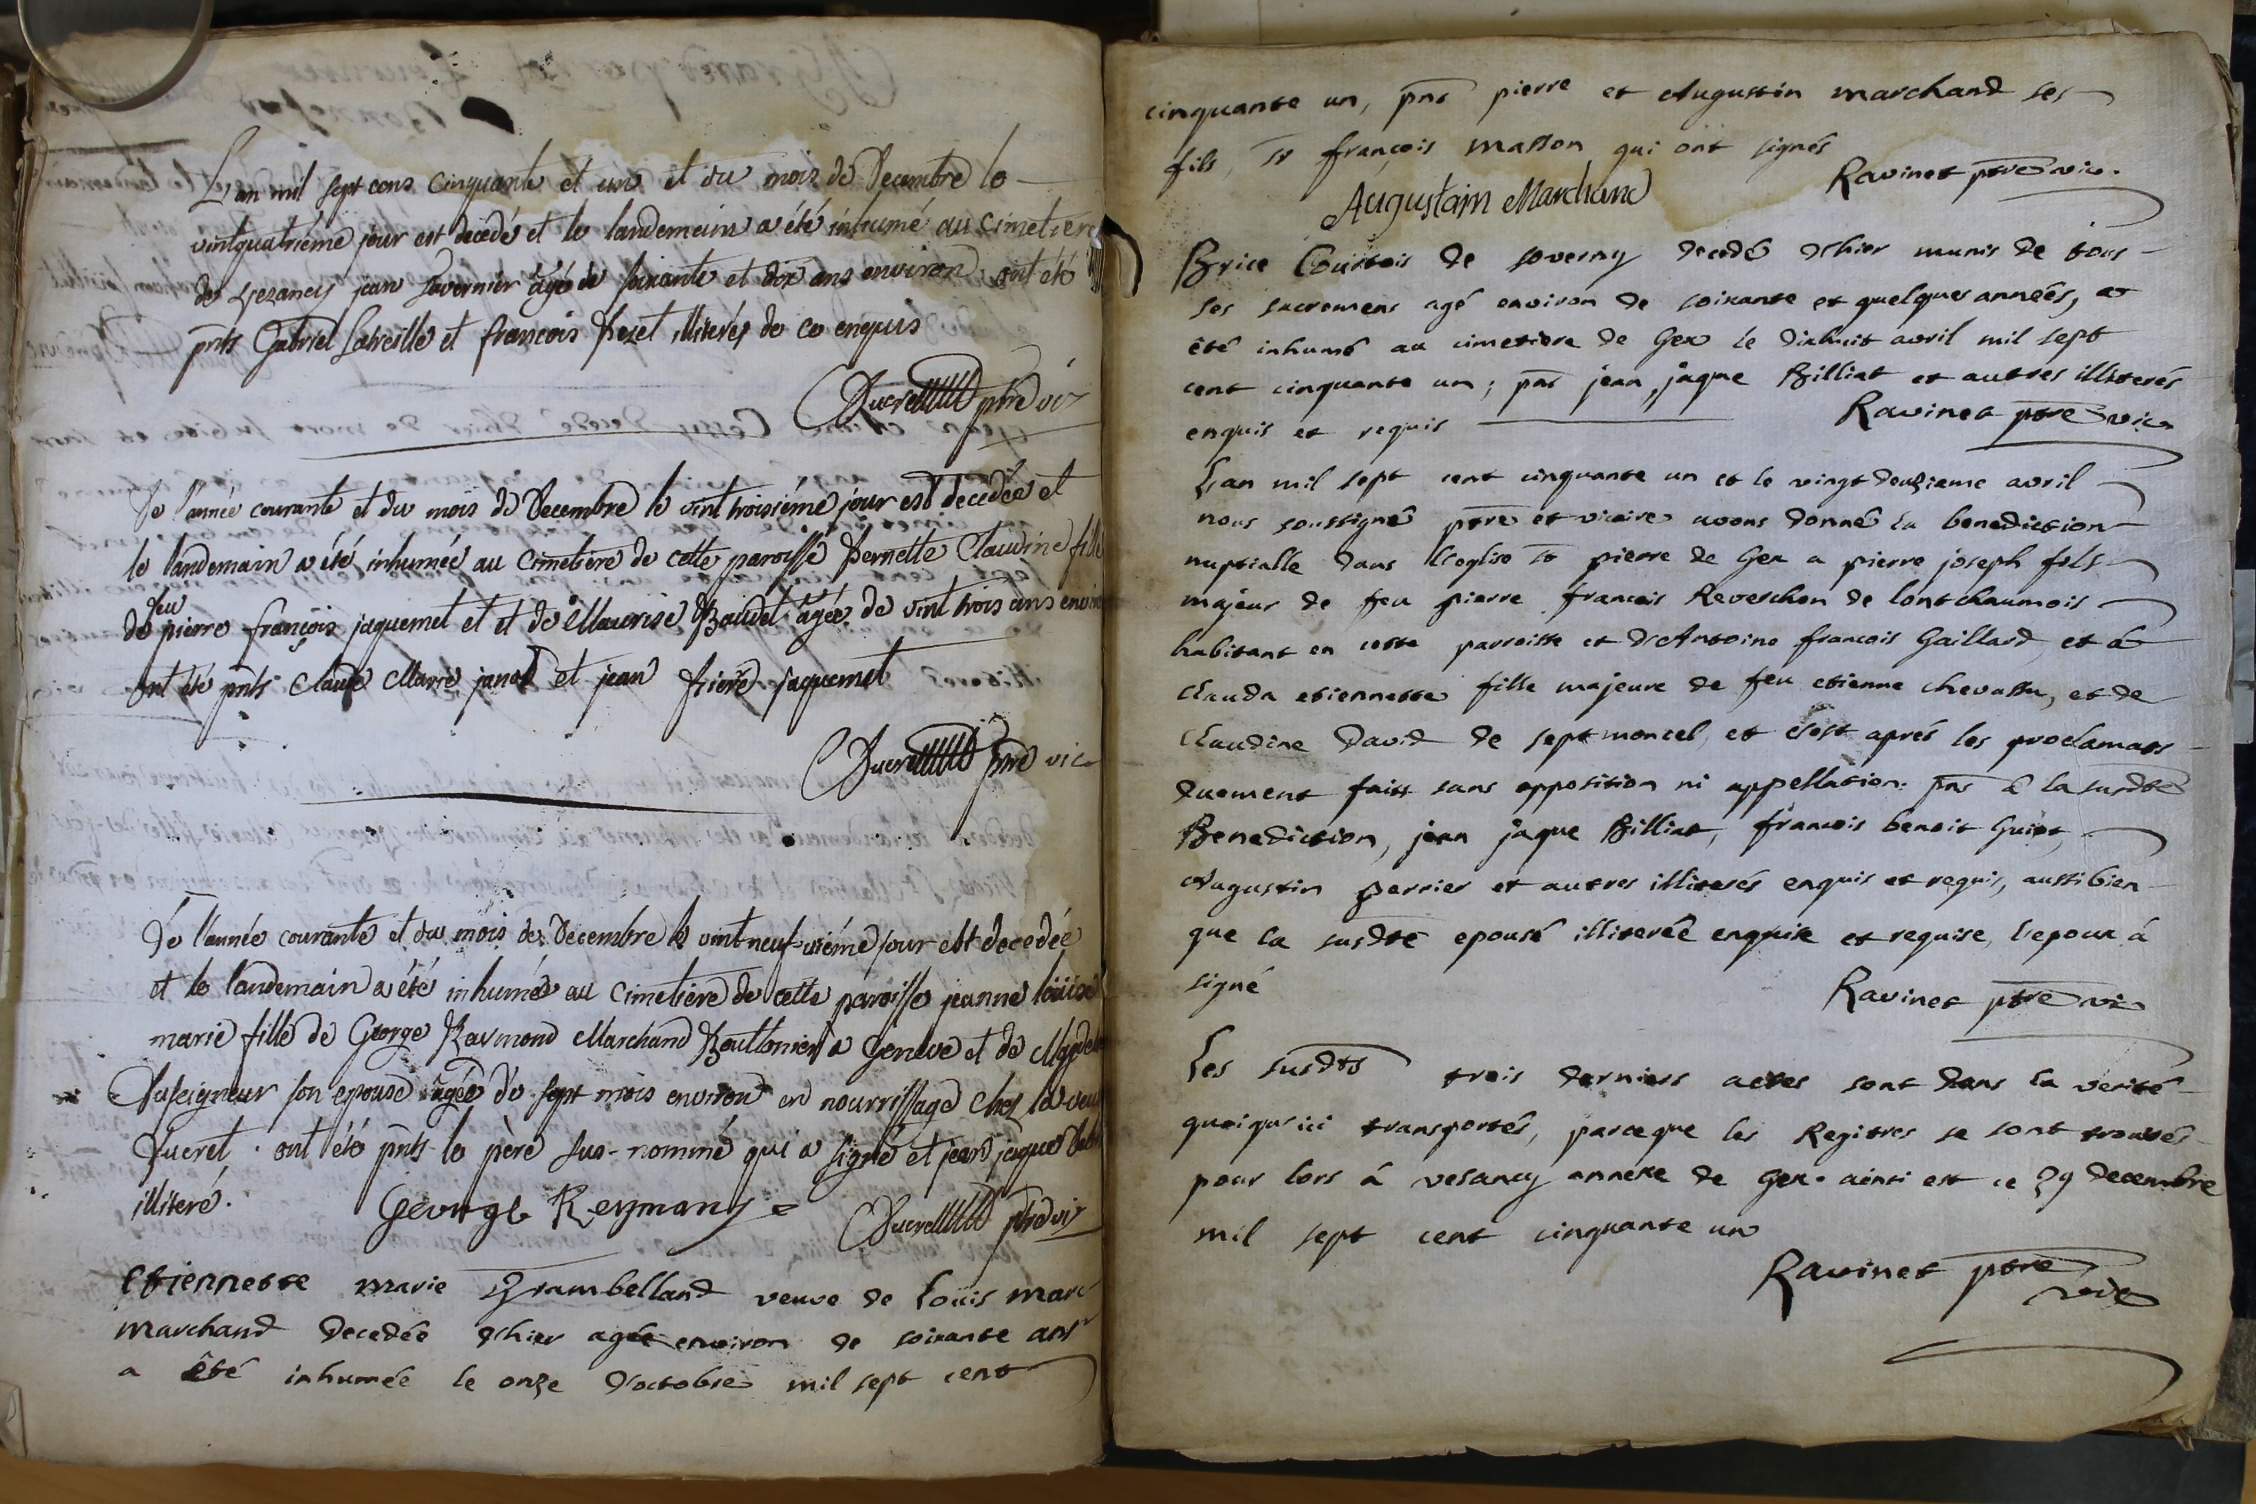 L'an mil sept cens cinquante et un et du mois de Decembre le
vintquatriéme jour est decedé et le landemain a été inhumé au Cimetiere
de Vezancy jean Tavernier âgé de soixante et dix ans environ ont été
pnts Gabriel Latreille et françois Pezet illiterés de ce enquis
Ducret ptre vic
De l'année courante et du mois de Decembre le vint troisiéme jour est decedée et
le landemain a été inhumée au Cimetière de cette paroisse Pernette Claudine fille
feu
de pierre françois jaquemet et et de Maurise Baudet âgée de vint trois ans environ
ont été pnts Claude Marie janod et jean Pierre jaquemet
Ducret ptre vic
De l'année courante et du mois de Decembre le vint-neuf-viéme jour est decedée
et le landemain a été inhumée au Cimetière de cette paroisse jeanne loüise
marie fille de George Raymond Marchand Boutonier a Geneve et de
Duseigneur son epouse âgée de sept mois environ en nourrissage chez la veuve
Ducret. ont été pnts le père sus-nommé qui a signé et jean jaque
illiteré. George Reymond
Ducret ptre vic
Etiennette marie Grambelland veuve de Loüis marc
marchand decedée d'hier agée environ de soixante ans
a été inhumée le onze d'octobre mil sept cent
cinquante un, pnt pierre et Augustin marchand ses
fils, sr françois masson qui ont signés
Ravinet ptre vic.
Augustain Marchand
Brice Courtois de soverny decedé d'hier munis de tous
ses sacremens agé environ de soixante et quelques années, a
été inhumé au cimetiere de Gex le dixhuit avril mil sept
cent cinquante un; pnt jean jaque Billiat et autres illiterés
enquis et requis
Ravinet ptre vic
L'an mil sept cent cinquante un et le vingt deuzieme avril
nous soussigné ptre et vicaire avons donné la benediction
nuptialle dans l'eglise st pierre de Gex a pierre joseph fils
majeur de feu pierre francois Reverchon de lontchaumois
habitant en cette parroisse et d'Antoine francois Gaillard, et a
clauda etiennette fille majeure de feu etienne chevassu, et de
claudine David de septmoncel, et c'est aprés les proclamats
duement faits sans opposition ni appellation. pnt a la susdte
Benediction, jean jaque Billiat, francois benoit Guiot,
Augustin perrier et autres illiterés enquis et requis, aussi bien
que la susdte epouse illiterée enquise et requise, l'epoux á
signé
Ravinet ptre vic
Les susdts trois derniers actes sont dans la verité
quoiqu'ici transportés, parceque les Regitres se sont trouvés
pour lors á vesancy annexe de Gex. ainsi est ce 29 decembre
mil sept cent cinquante un
Ravinet ptre
vic